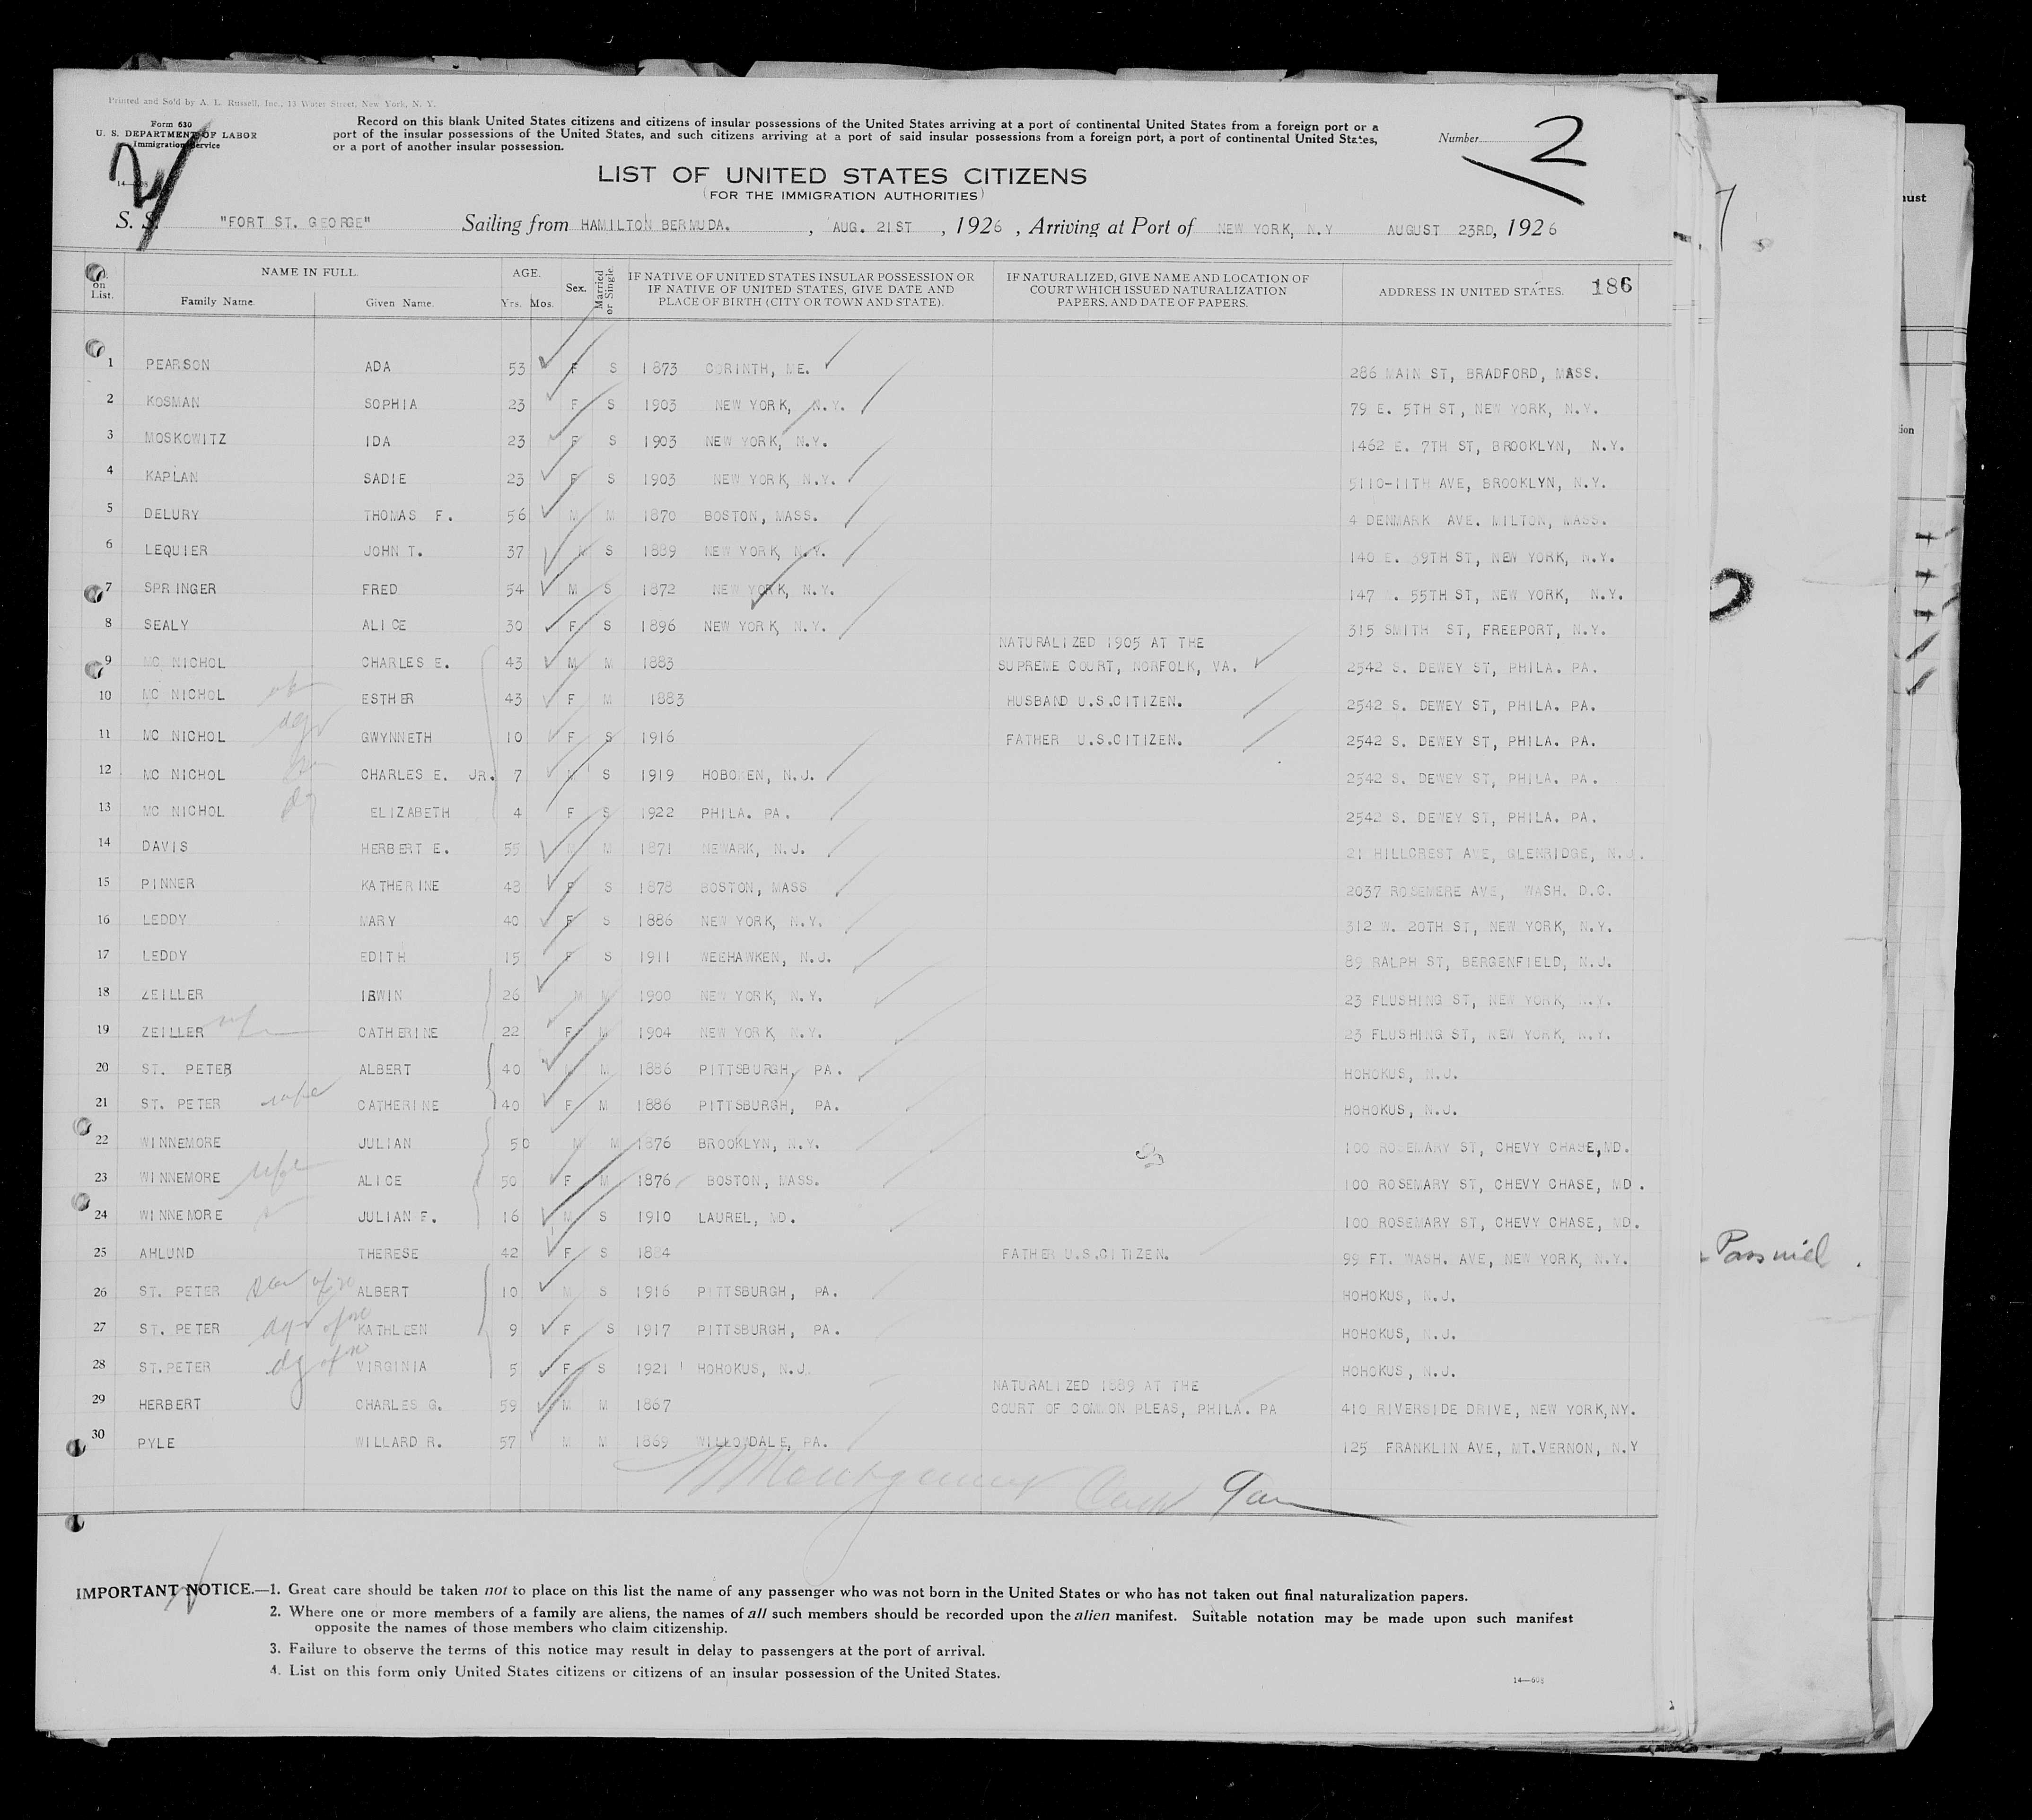 Printed and Sold by A. L. Russell, Inc., 13 Water Street, New York, N. Y.
Form 630
U. S. DEPARTMENT OF LABOR
Immigration Service
Record on this blank United States citizens and citizens of insular possessions of the United States arriving at a port of continental United States from a foreign port or a
port of the insular possessions of the United States, and such citizens arriving at a port of said insular possessions from a foreign port, a port of continental United States,
or a port of another insular possession.
Number 2
LIST OF UNITED STATES CITIZENS
(FOR THE IMMIGRATION AUTHORITIES)
S. S. "FORT ST. GEORGE" Sailing from HAMILTON BERMUDA. , AUG. 21ST , 1926 , Arriving at Port of NEW YORK, N.Y AUGUST 23RD, 1926
on List. NAME IN FULL. Family Name. Given Name. AGE. Yrs. Mos. Sex. Married or Single. IF NATIVE OF UNITED STATES INSULAR POSSESSION OR IF NATIVE OF UNITED STATES, GIVE DATE AND PLACE OF BIRTH (CITY OR TOWN AND STATE). IF NATURALIZED, GIVE NAME AND LOCATION OF COURT WHICH ISSUED NATURALIZATION PAPERS, AND DATE OF PAPERS. ADDRESS IN UNITED STATES. 186
1 PEARSON ADA 53 F S 1873 CORINTH, ME. 286 MAIN ST, BRADFORD, MASS.
2 KOSMAN SOPHIA 23 F S 1903 NEW YORK, N.Y. 79 E. 5TH ST, NEW YORK, N.Y.
3 MOSKOWITZ IDA 23 F S 1903 NEW YORK, N.Y. 1462 E. 7TH ST, BROOKLYN, N.Y.
4 KAPLAN SADIE 23 F S 1903 NEW YORK, N.Y. 5110-11TH AVE, BROOKLYN, N.Y.
5 DELURY THOMAS F. 56 M M 1870 BOSTON, MASS. 4 DENMARK AVE. MILTON, MASS.
6 LEQUIER JOHN T. 37 M S 1889 NEW YORK, N.Y. 140 E. 39TH ST, NEW YORK, N.Y.
7 SPRINGER FRED 54 M S 1872 NEW YORK, N.Y. 147 . 55TH ST, NEW YORK, N.Y.
8 SEALY ALICE 30 F S 1896 NEW YORK, N.Y. 315 SMITH ST, FREEPORT, N.Y.
NATURALIZED 1905 AT THE
9 MC NICHOL CHARLES E. 43 M M 1883 SUPREME COURT, NORFOLK, VA. 2542 S. DEWEY ST, PHILA. PA.
10 MC NICHOL ESTHER 43 F M 1883 HUSBAND U.S.CITIZEN. 2542 S. DEWEY ST, PHILA. PA.
11 MC NICHOL GWYNNETH 10 F S 1916 FATHER U.S.CITIZEN. 2542 S. DEWEY ST, PHILA. PA.
12 MC NICHOL CHARLES E. JR. 7 M S 1919 HOBOKEN, N.J. 2542 S. DEWEY ST, PHILA. PA.
13 MC NICHOL ELIZABETH 4 F S 1922 PHILA. PA. 2542 S. DEWEY ST, PHILA. PA.
14 DAVIS HERBERT E. 55 M M 1871 NEWARK, N.J. 21 HILLCREST AVE, GLENRIDGE, N.J.
15 PINNER KATHERINE 48 F S 1878 BOSTON, MASS 2037 ROSEMERE AVE, WASH. D.C.
16 LEDDY MARY 40 F S 1886 NEW YORK, N.Y. 312 W. 20TH ST, NEW YORK, N.Y.
17 LEDDY EDITH 15 F S 1911 WEEHAWKEN, N.J. 89 RALPH ST, BERGENFIELD, N.J.
18 ZEILLER IRWIN 26 M M 1900 NEW YORK, N.Y. 23 FLUSHING ST, NEW YORK, N.Y.
19 ZEILLER CATHERINE 22 F M 1904 NEW YORK, N.Y. 23 FLUSHING ST, NEW YORK, N.Y.
20 ST. PETER ALBERT 40 M 1886 PITTSBURGH, PA. HOHOKUS, N.J.
21 ST. PETER wife CATHERINE 40 F M 1886 PITTSBURGH, PA. HOHOKUS, N.J.
22 WINNEMORE JULIAN 50 M M 1876 BROOKLYN, N.Y. 100 ROSEMARY ST, CHEVY CHASE,MD.
23 WINNEMORE wife ALICE 50 F M 1876 BOSTON, MASS. 100 ROSEMARY ST, CHEVY CHASE, MD.
24 WINNEMORE JULIAN F. 16 M S 1910 LAUREL, MD. 100 ROSEMARY ST, CHEVY CHASE, MD.
25 AHLUND THERESE 42 F S 1884 FATHER U.S.CITIZEN. 99 FT. WASH. AVE, NEW YORK, N.Y.
26 ST. PETER son of 20 ALBERT 10 M S 1916 PITTSBURGH, PA. HOHOKUS, N.J.
27 ST. PETER KATHLEEN 9 F S 1917 PITTSBURGH, PA. HOHOKUS, N.J.
28 ST.PETER VIRGINIA 5 F S 1921 HOHOKUS, N.J. HOHOKUS, N.J.
NATURALIZED 1889 AT THE
29 HERBERT CHARLES G. 59 M M 1867 COURT OF COMMON PLEAS, PHILA. PA 410 RIVERSIDE DRIVE, NEW YORK,NY.
30 PYLE WILLARD R. 57 M M 1869 WILLOWDALE, PA. 125 FRANKLIN AVE, MT.VERNON, N.Y
Montgomery
IMPORTANT NOTICE.—1. Great care should be taken not to place on this list the name of any passenger who was not born in the United States or who has not taken out final naturalization papers.
2. Where one or more members of a family are aliens, the names of all such members should be recorded upon the alien manifest. Suitable notation may be made upon such manifest
opposite the names of those members who claim citizenship.
3. Failure to observe the terms of this notice may result in delay to passengers at the port of arrival.
4. List on this form only United States citizens or citizens of an insular possession of the United States.
14—608